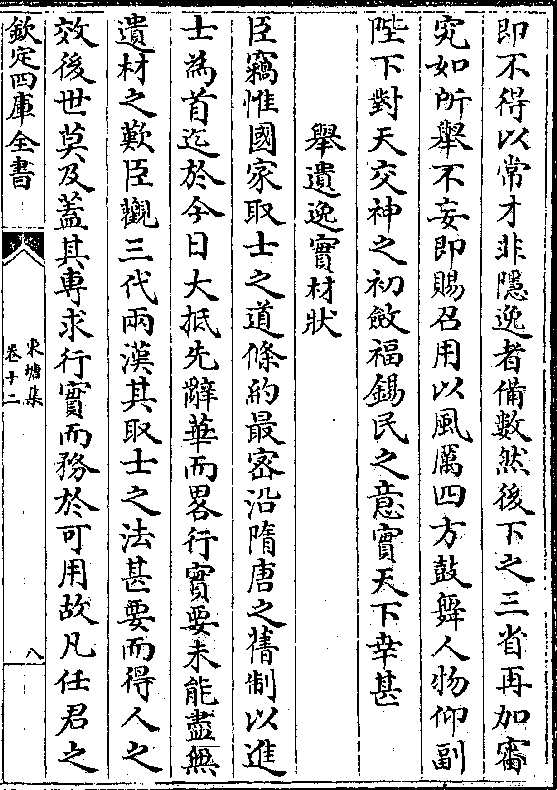 即不得以常才非隱逸者備數然後下之三省再加審
究如所舉不妄即賜召用以風厲四方鼓舞人物仰副
陛下對天交神之初斂福錫民之意實天下幸甚
舉遺逸實材狀
臣竊惟國家取士之道條約最密沿隋唐之舊制以進
士為首迄於今日大抵先辭華而畧行實要未能盡無
遺材之歎臣觀三代兩漢其取士之法甚要而得人之
效後世莫及蓋其專求行實而務於可用故凡任君之
欽定四庫全書
東塘集
卷十二
八